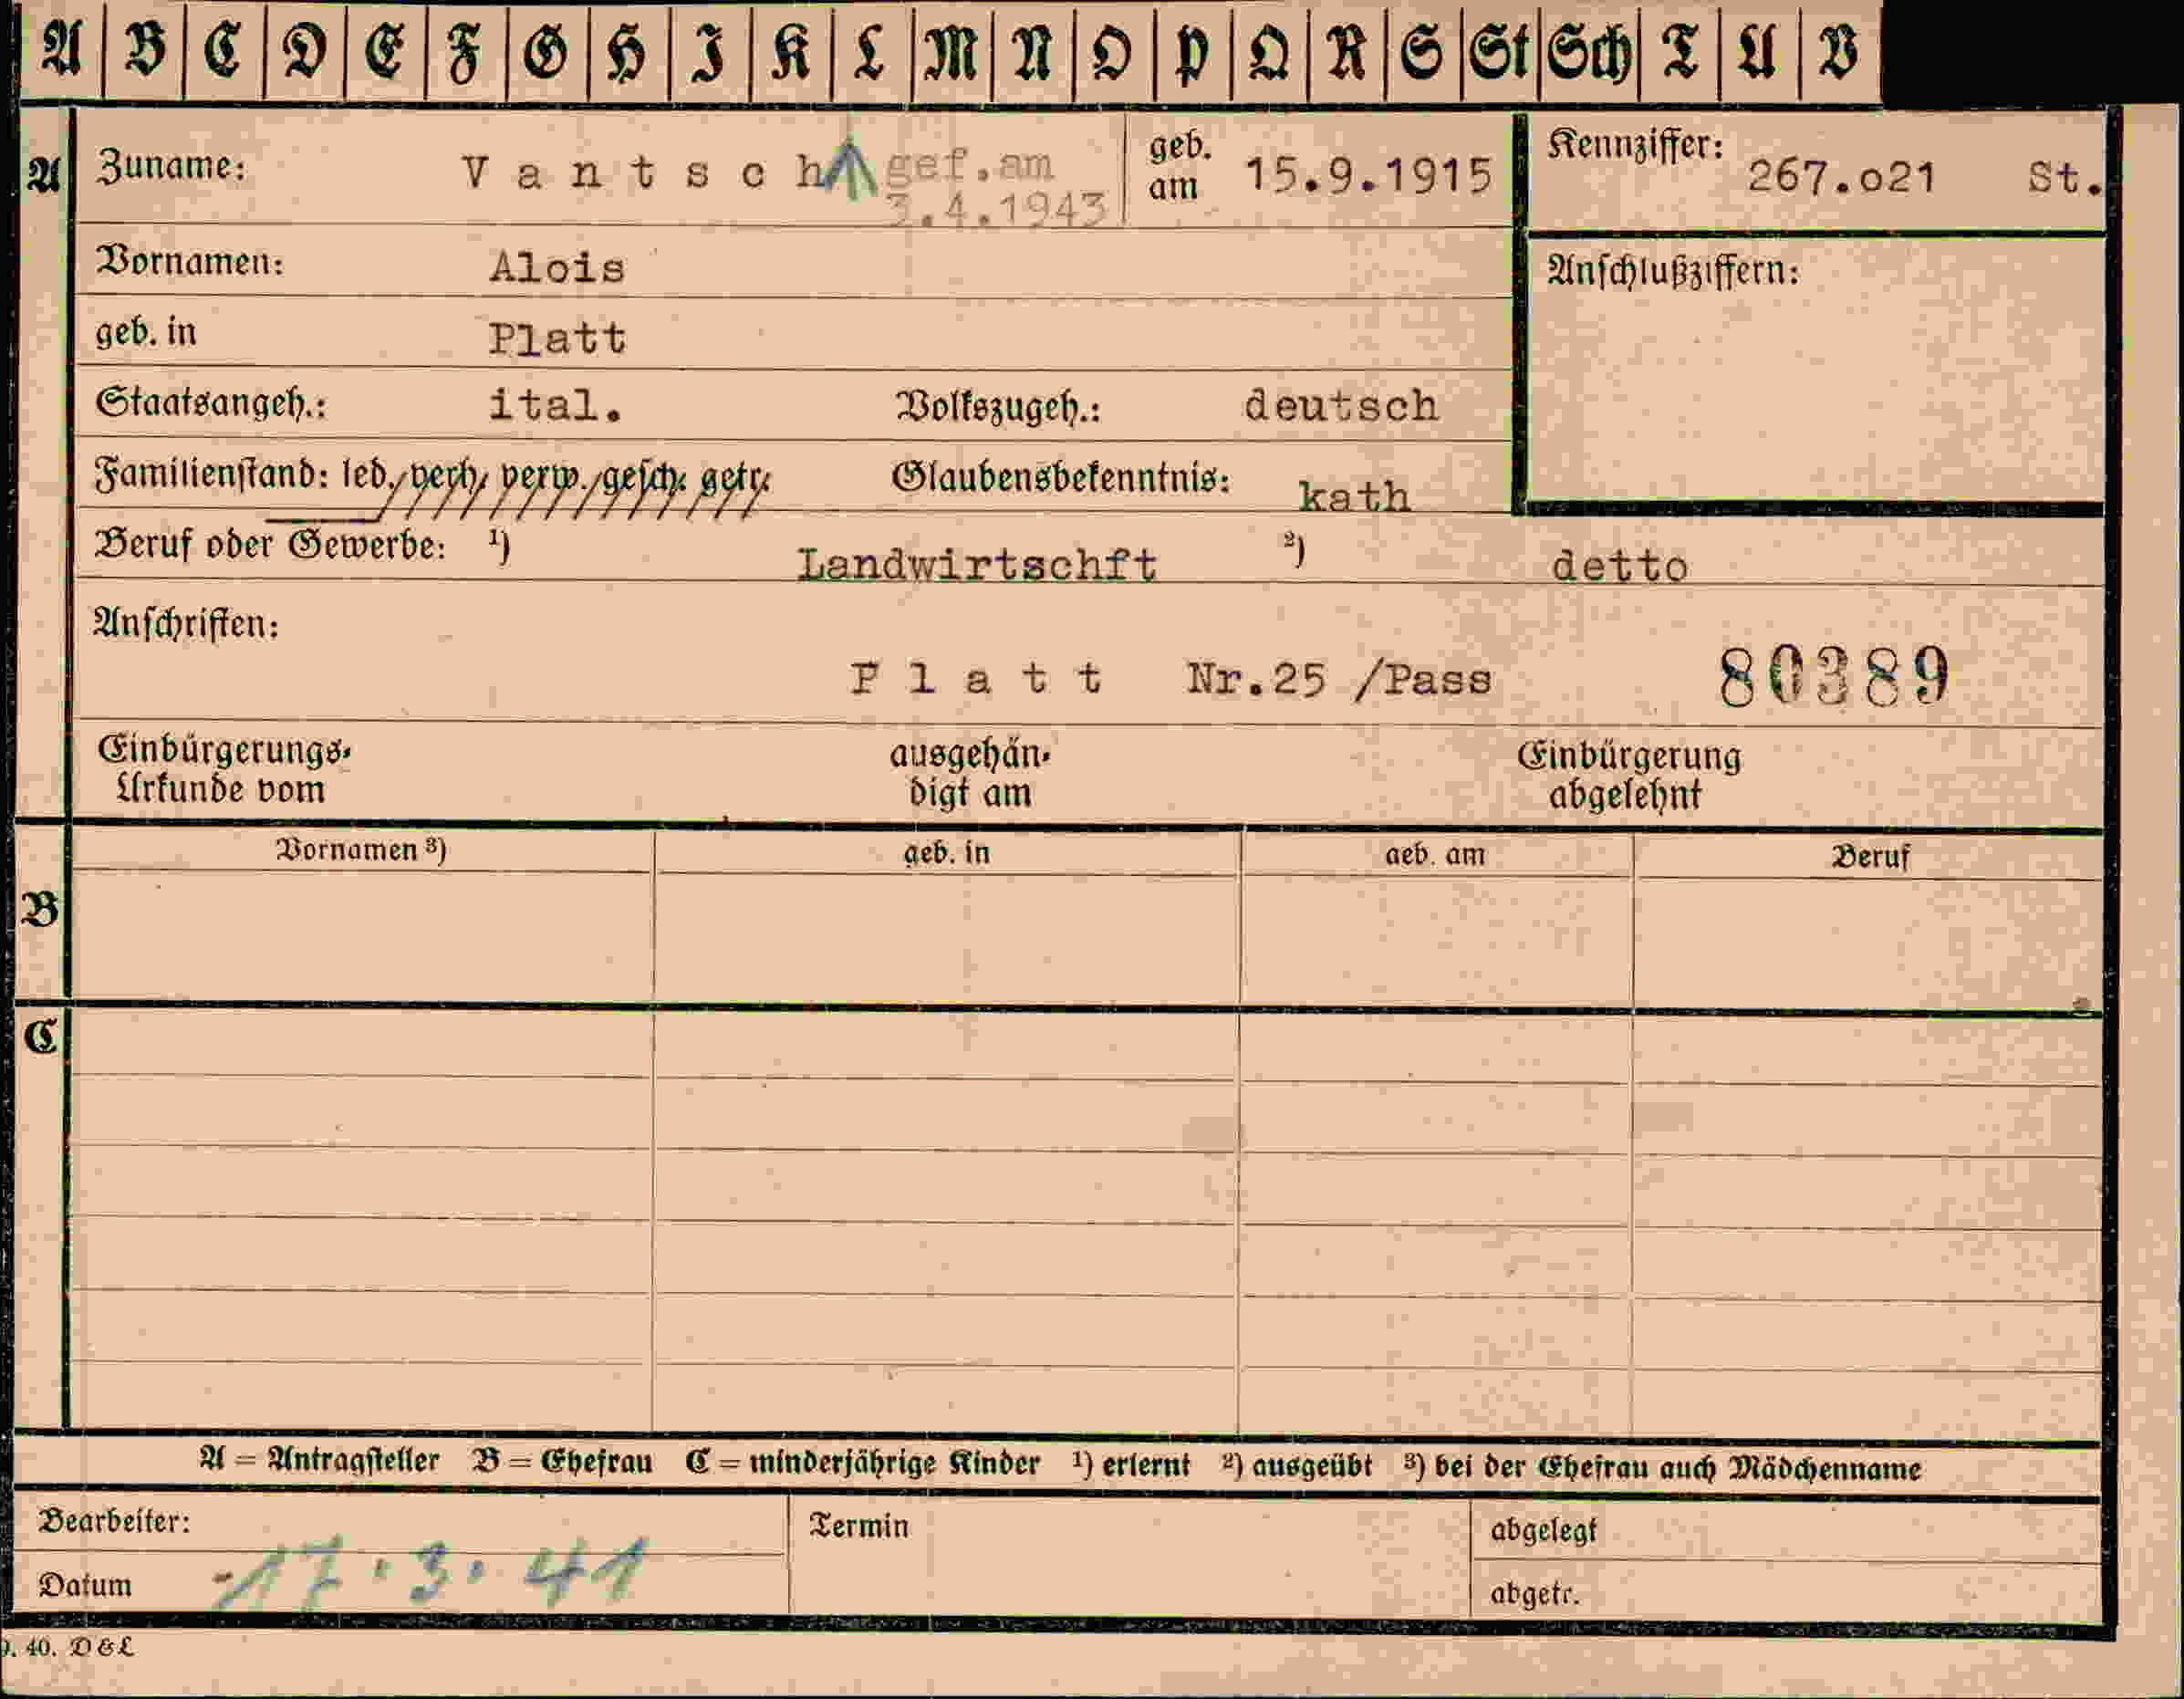 A B C D E F G H I K L M N O P Q R S St Sch T U V
A Zuname: Vantsch gef.am 3.4.1943 geb. am 15.9.1915 Kennziffer: 267.o21 St.
Vornamen: Alois Anschlußziffern:
geb. in Platt
Staatsangeh.: ital. Volkszugeh.: deutsch
Familienstand: led./verh./verw./gesch. getr. Glaubensbekenntnis: kath
Beruf oder Gewerbe: ¹) Landwirtschft ²) detto
Anschriften:
Platt Nr.25 /Pass 80389
Einbürgerungs- ausgehän- Einbürgerung
Urkunde vom digt am abgelehnt
Vornamen ³) geb. in geb. am Beruf
B
C
A = Antragsteller B = Ehefrau C = minderjährige Kinder ¹) erlernt ²) ausgeübt ³) bei der Ehefrau auch Mädchenname
Bearbeiter: Termin abgelegt
Datum 17.3.41 abgetr.
40. D&L